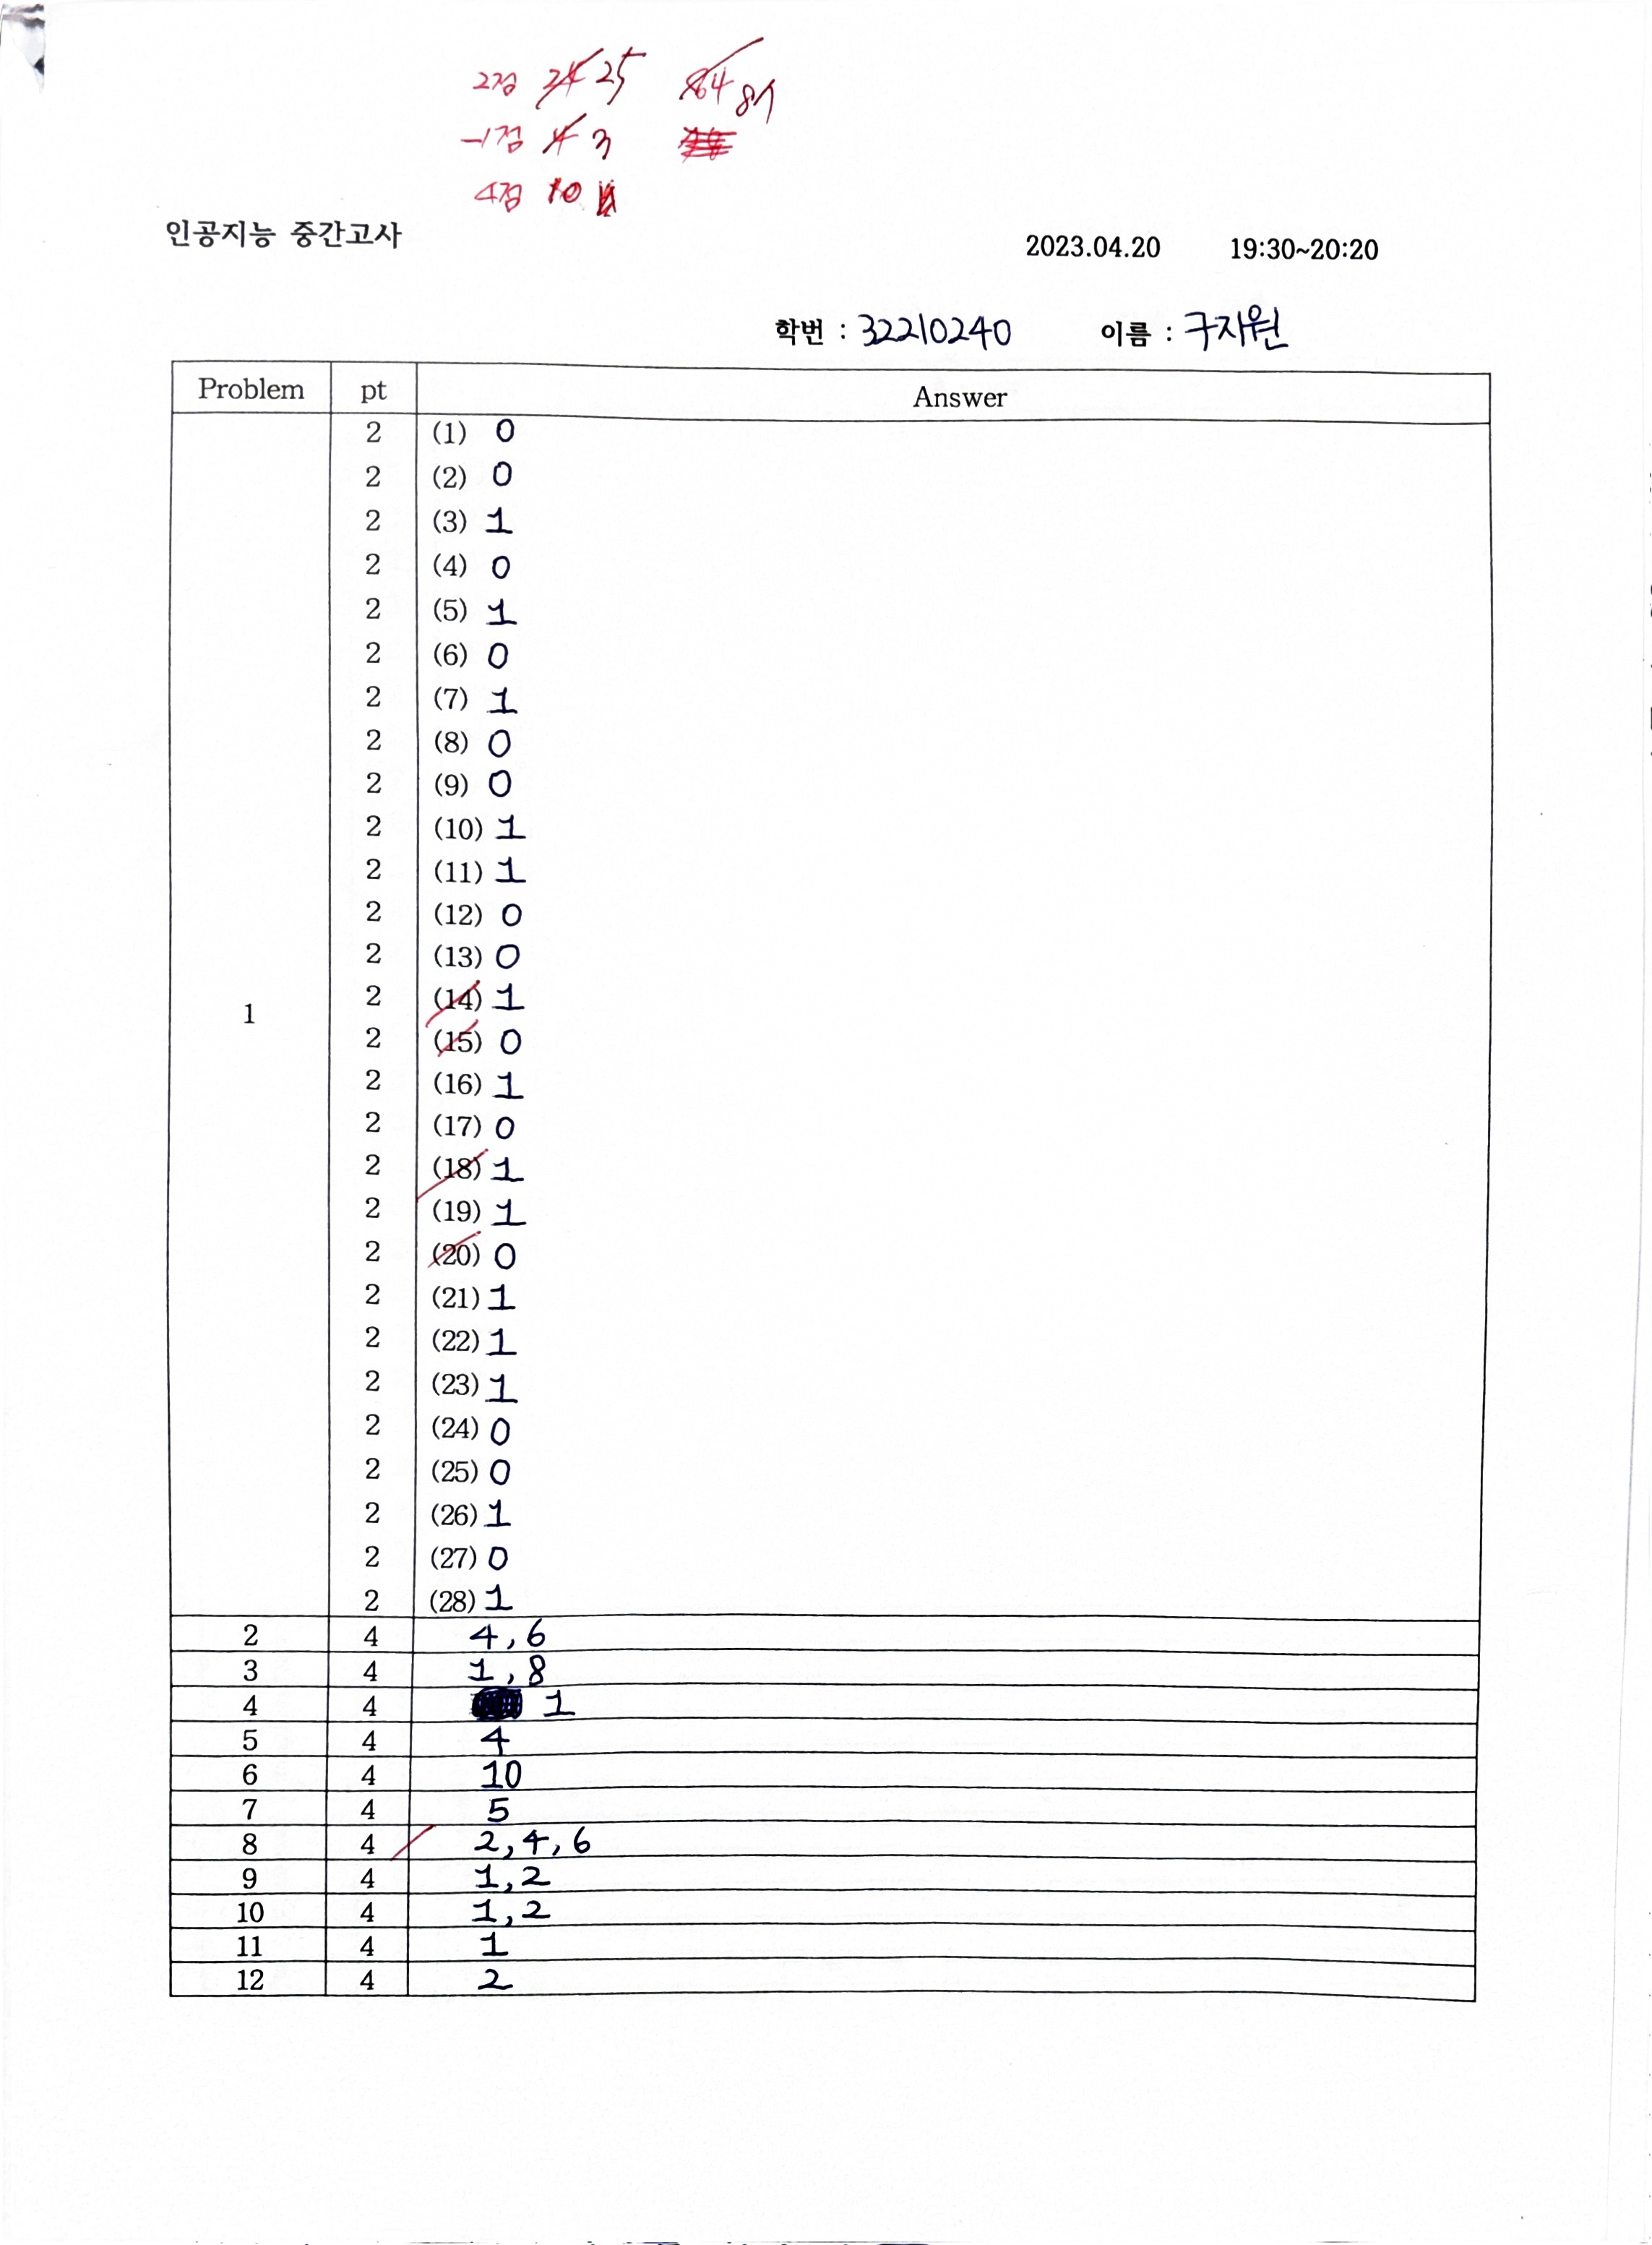 2점 24 25 84 87
-1점 4 3
4점 10
인공지능 중간고사 2023.04.20 19:30~20:20
학번 : 32210240 이름 : 구지원
Problem pt Answer
2 (1) 0
2 (2) 0
2 (3) 1
2 (4) 0
2 (5) 1
2 (6) 0
2 (7) 1
2 (8) 0
2 (9) 0
2 (10) 1
2 (11) 1
2 (12) 0
2 (13) 0
1 2 (14) 1
2 (15) 0
2 (16) 1
2 (17) 0
2 (18) 1
2 (19) 1
2 (20) 0
2 (21) 1
2 (22) 1
2 (23) 1
2 (24) 0
2 (25) 0
2 (26) 1
2 (27) 0
2 (28) 1
2 4 4, 6
3 4 1, 8
4 4 1
5 4 4
6 4 10
7 4 5
8 4 2, 4, 6
9 4 1, 2
10 4 1, 2
11 4 1
12 4 2